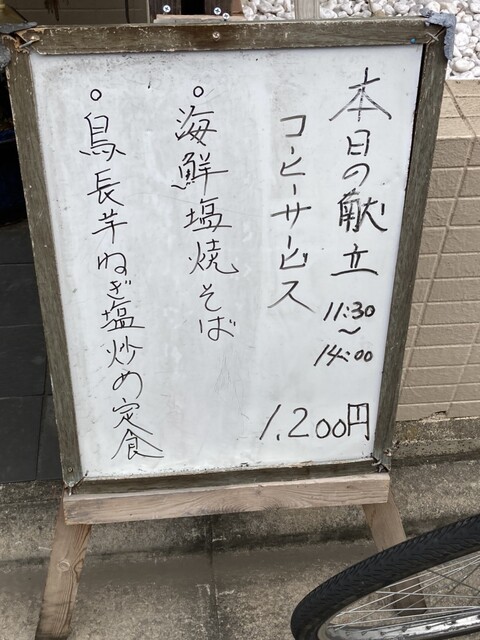 本日の献立
11:30
～
14:00
コーヒーサービス
。海鮮塩焼そば
。鳥長芋ねぎ塩炒め定食
1,200円